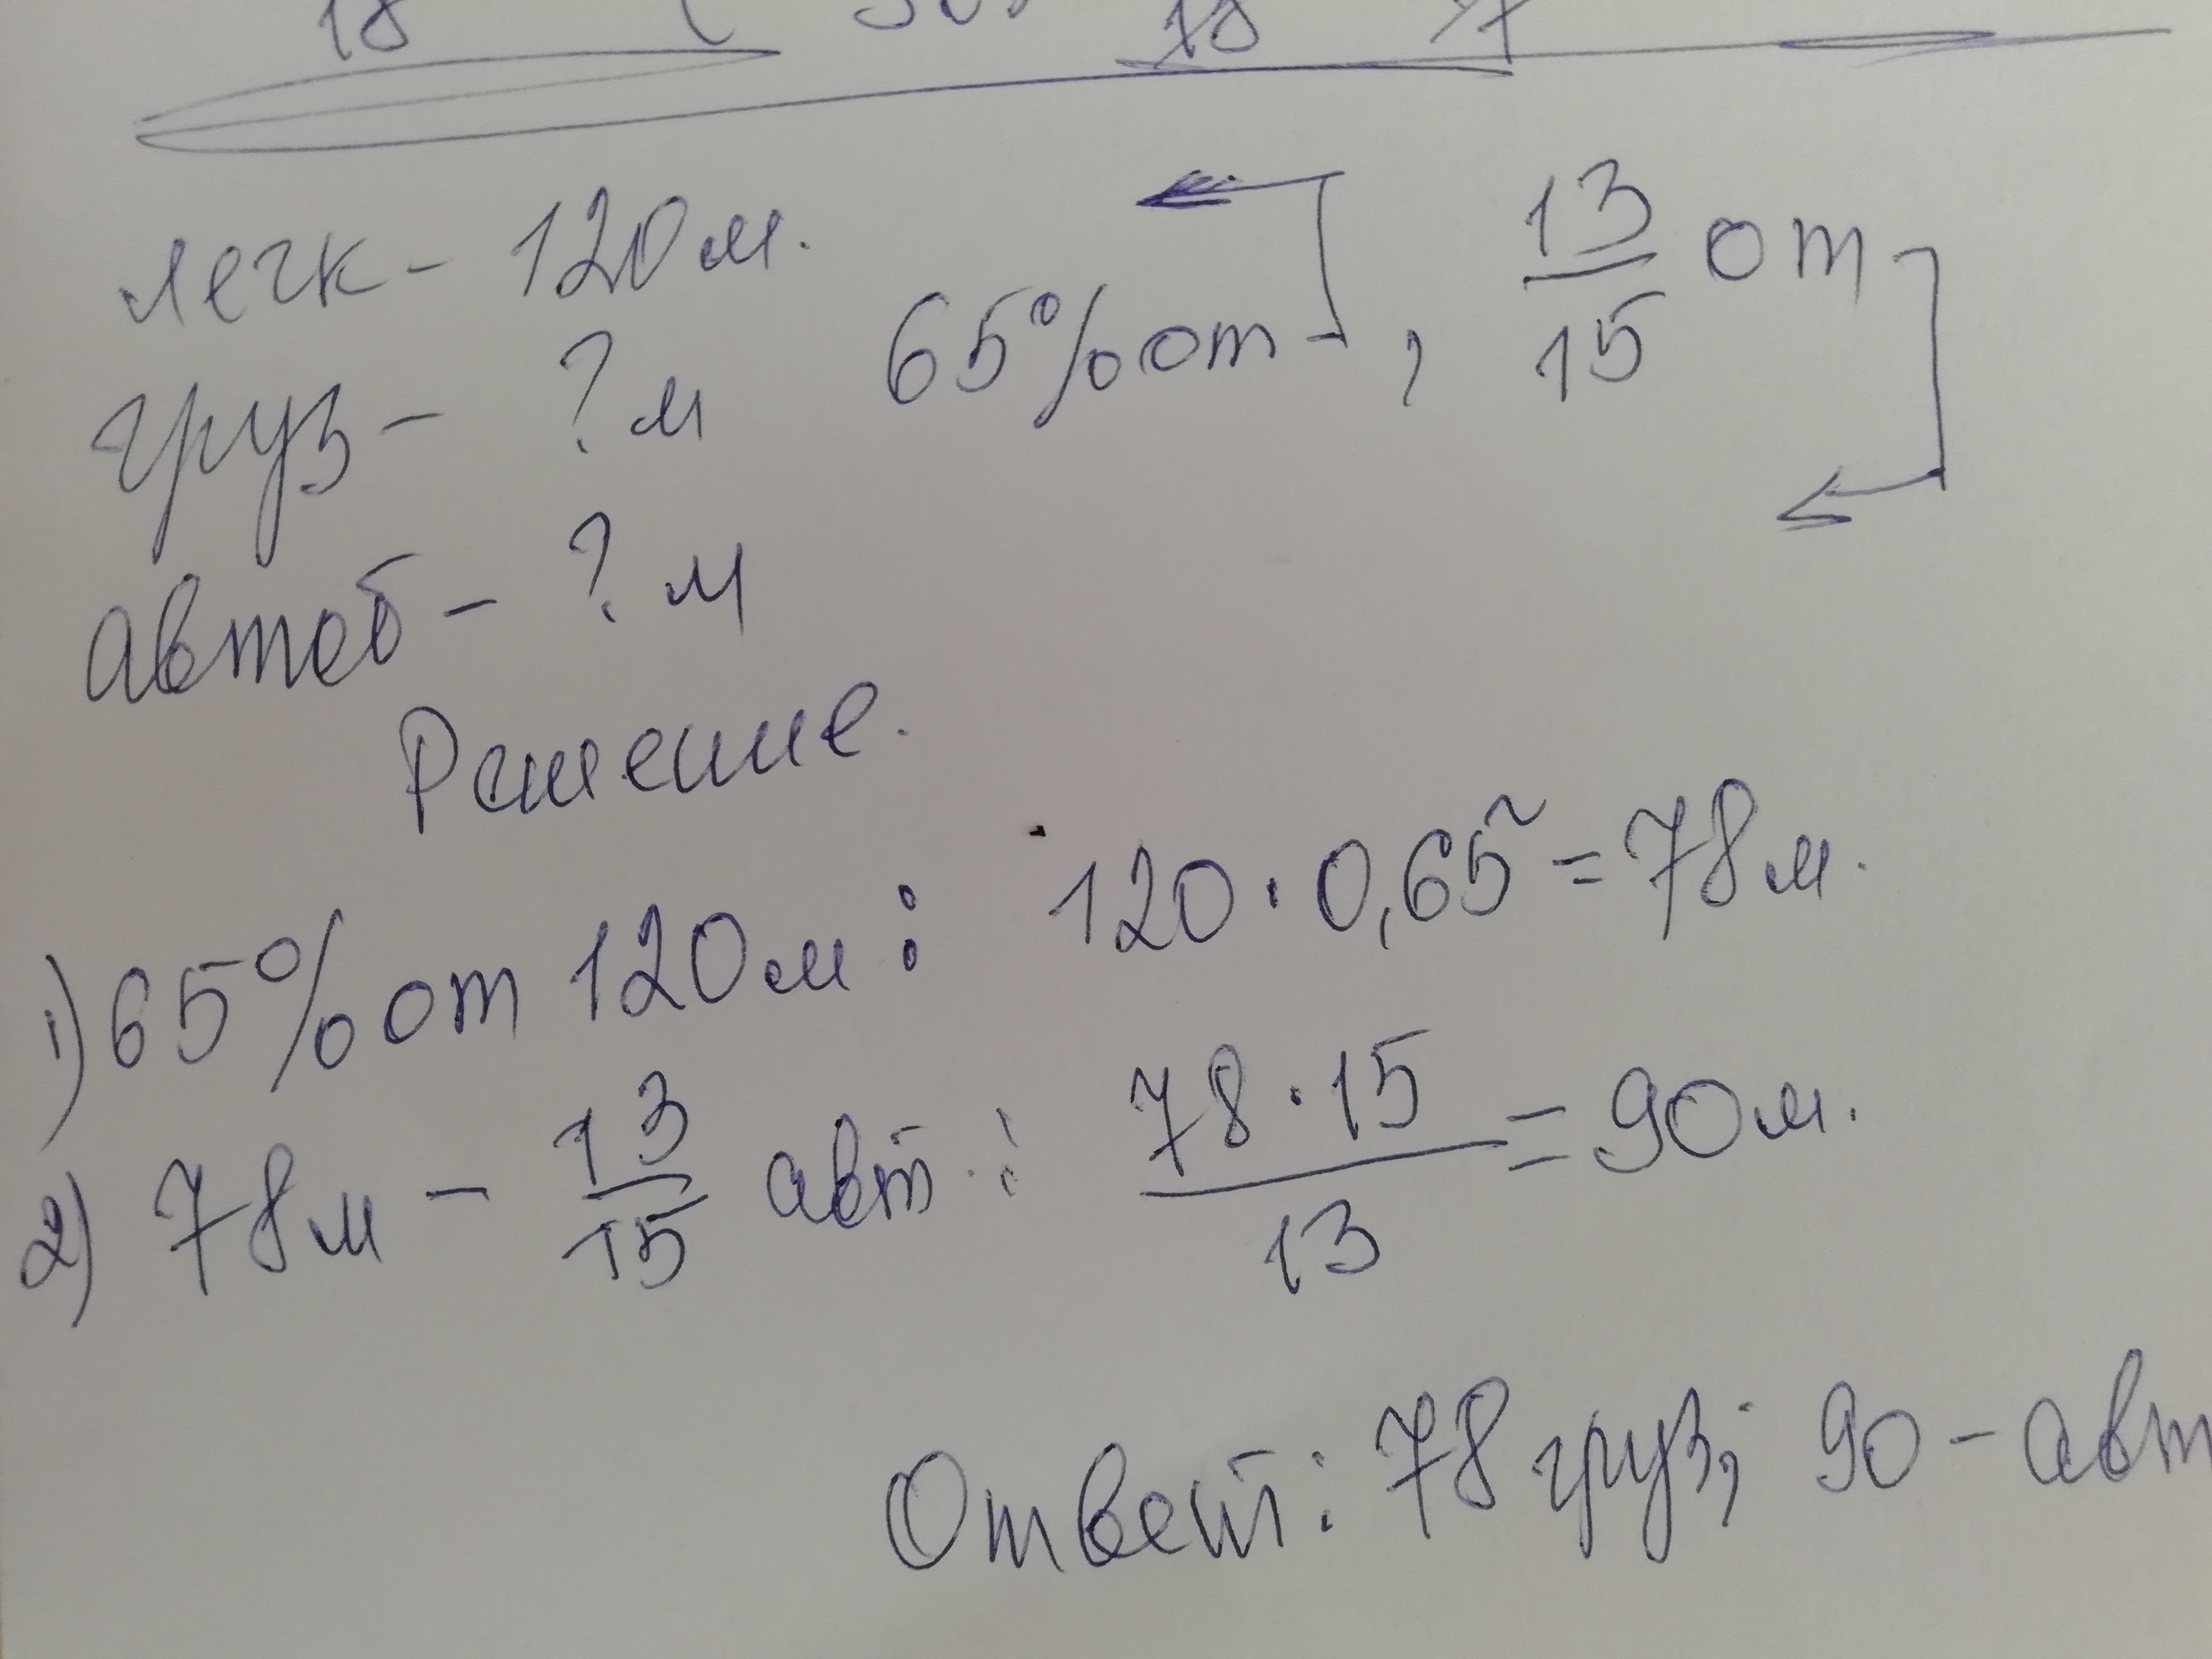 легк - 120 м.
груз - ? м 65% от , 13/15 от
автоб - ? м
Решение.
1) 65% от 120 м : 120 · 0,65 = 78 м.
2) 78 м - 13/15 авт : 78 · 15 / 13 = 90 м.
Ответ: 78 груз; 90 - авт